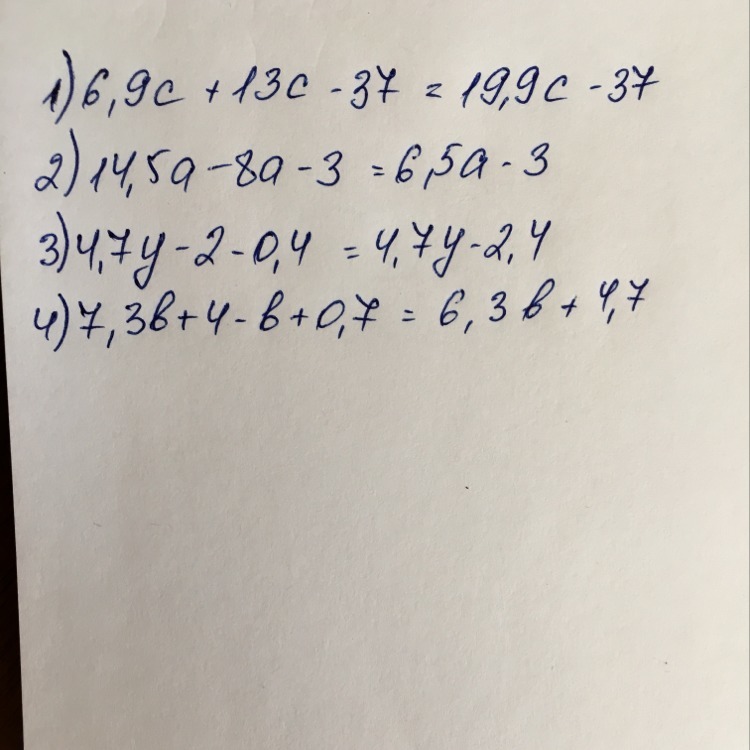 1) 6,9c + 13c - 37 = 19,9c - 37
2) 14,5a - 8a - 3 = 6,5a - 3
3) 4,7y - 2 - 0,4 = 4,7y - 2,4
4) 7,3в + 4 - в + 0,7 = 6,3в + 4,7